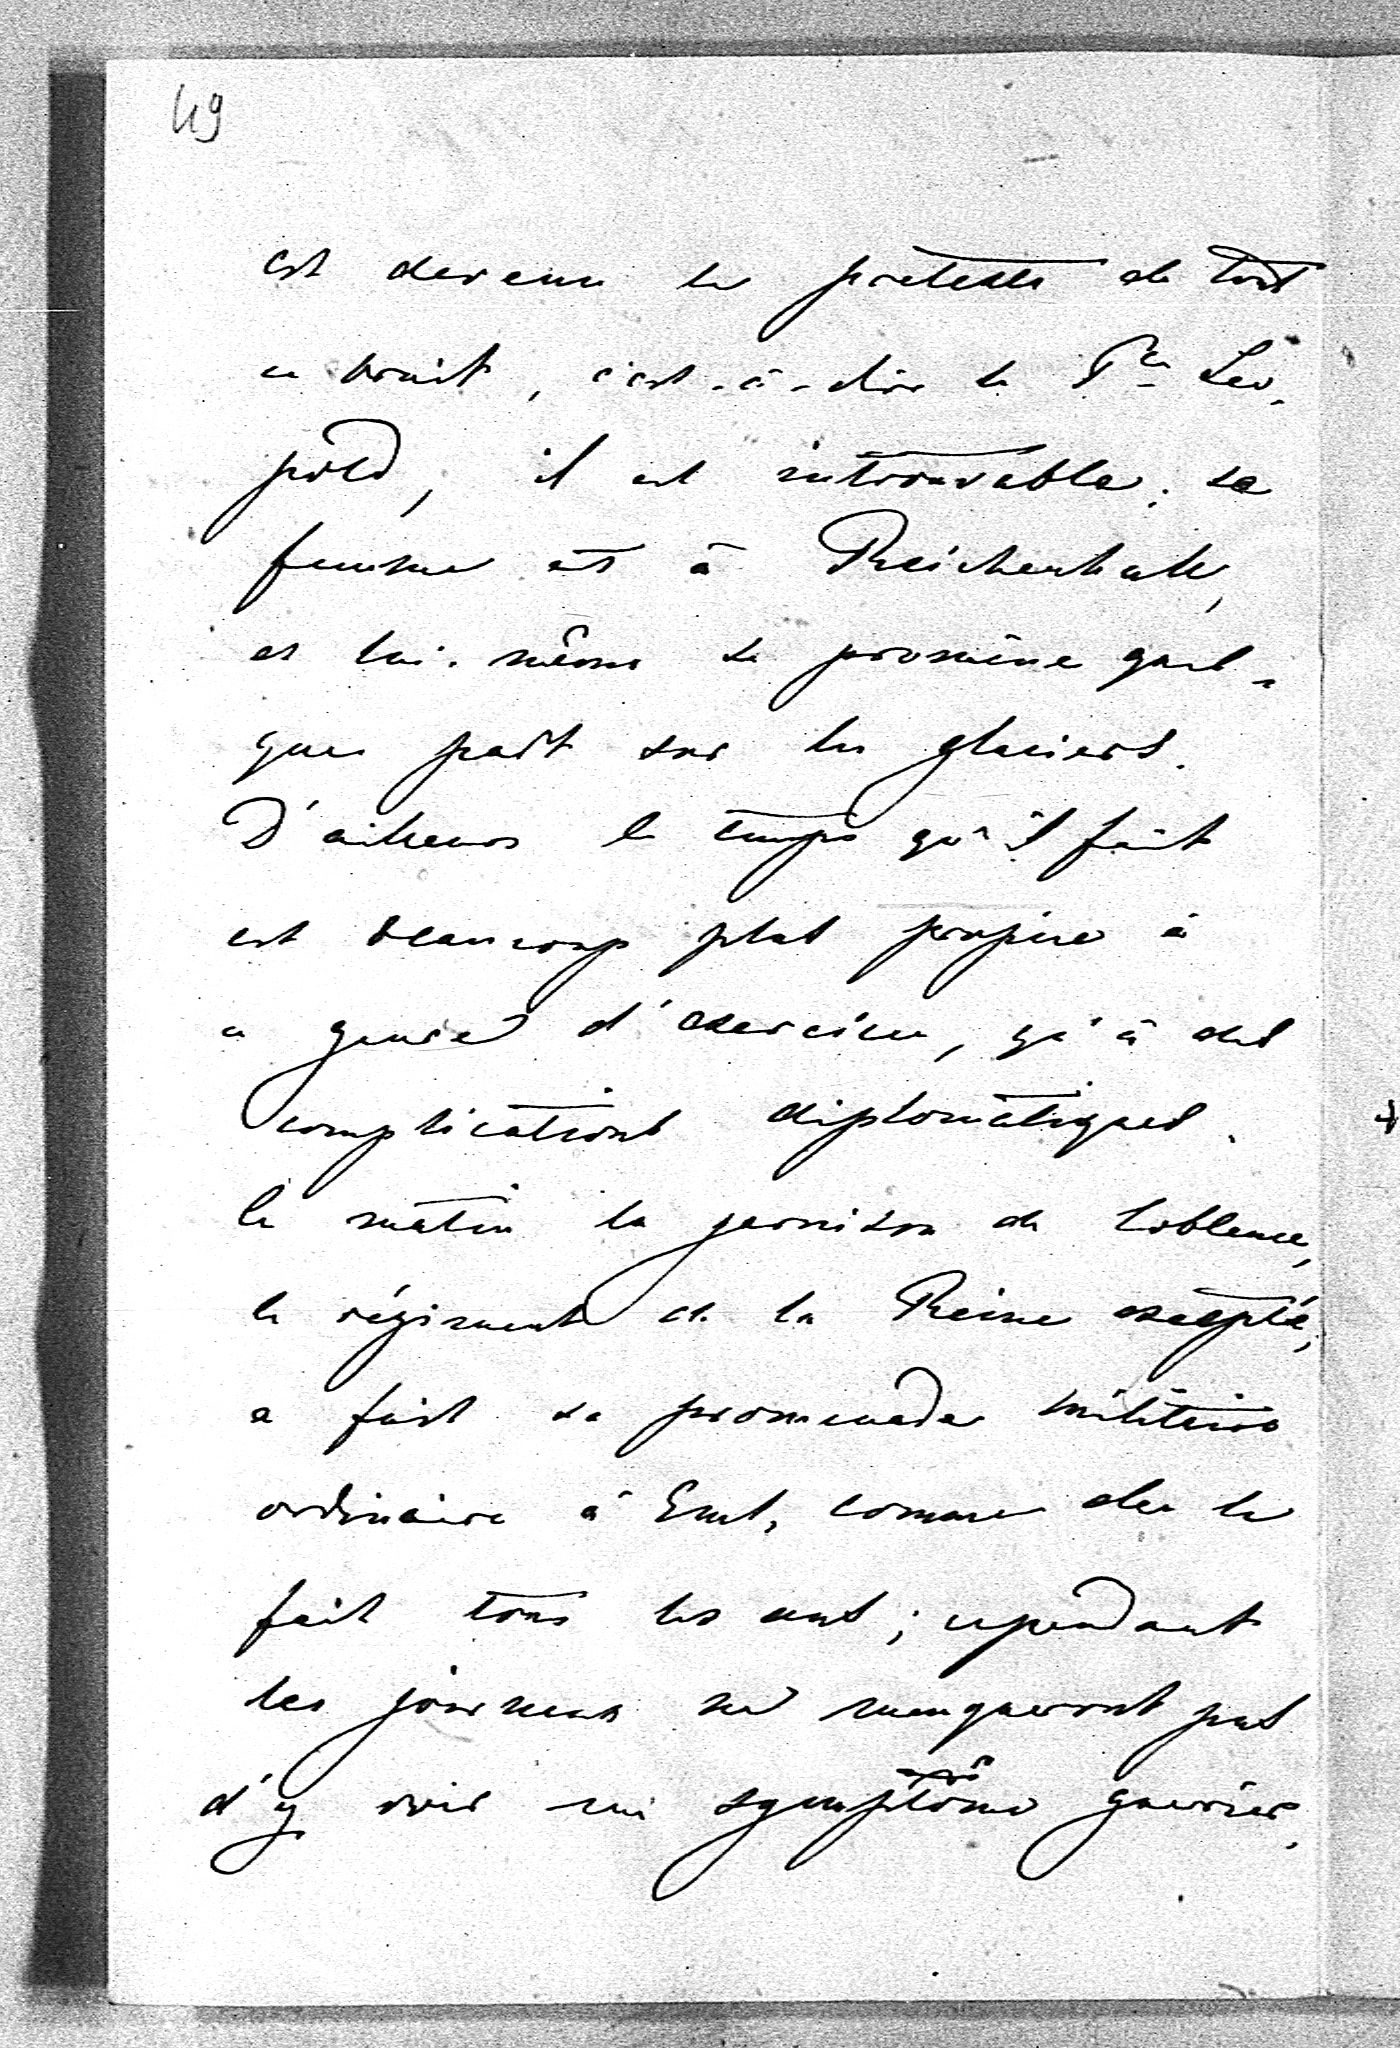 49
est devenu le prétexte de tout
ce bruit, c'est-à-dire le P^ce Léo-
pold, il est introuvable; sa
femme est à Reichenhall,
et lui-même se promène quel-
que part sur les glaciers.
D'ailleurs le temps qu'il fait
est beaucoup plus propice à
ce genre d'exercice, qu'à des
complications diplomatiques.
Ce matin la garnison de Coblence,
le régiment de la Reine excepté,
a fait sa promenade militaire
ordinaire à Ems, comme elle le
fait tous les ans; cependant
les journaux ne manqueront pas
d'y voir un symptôme guerrier.